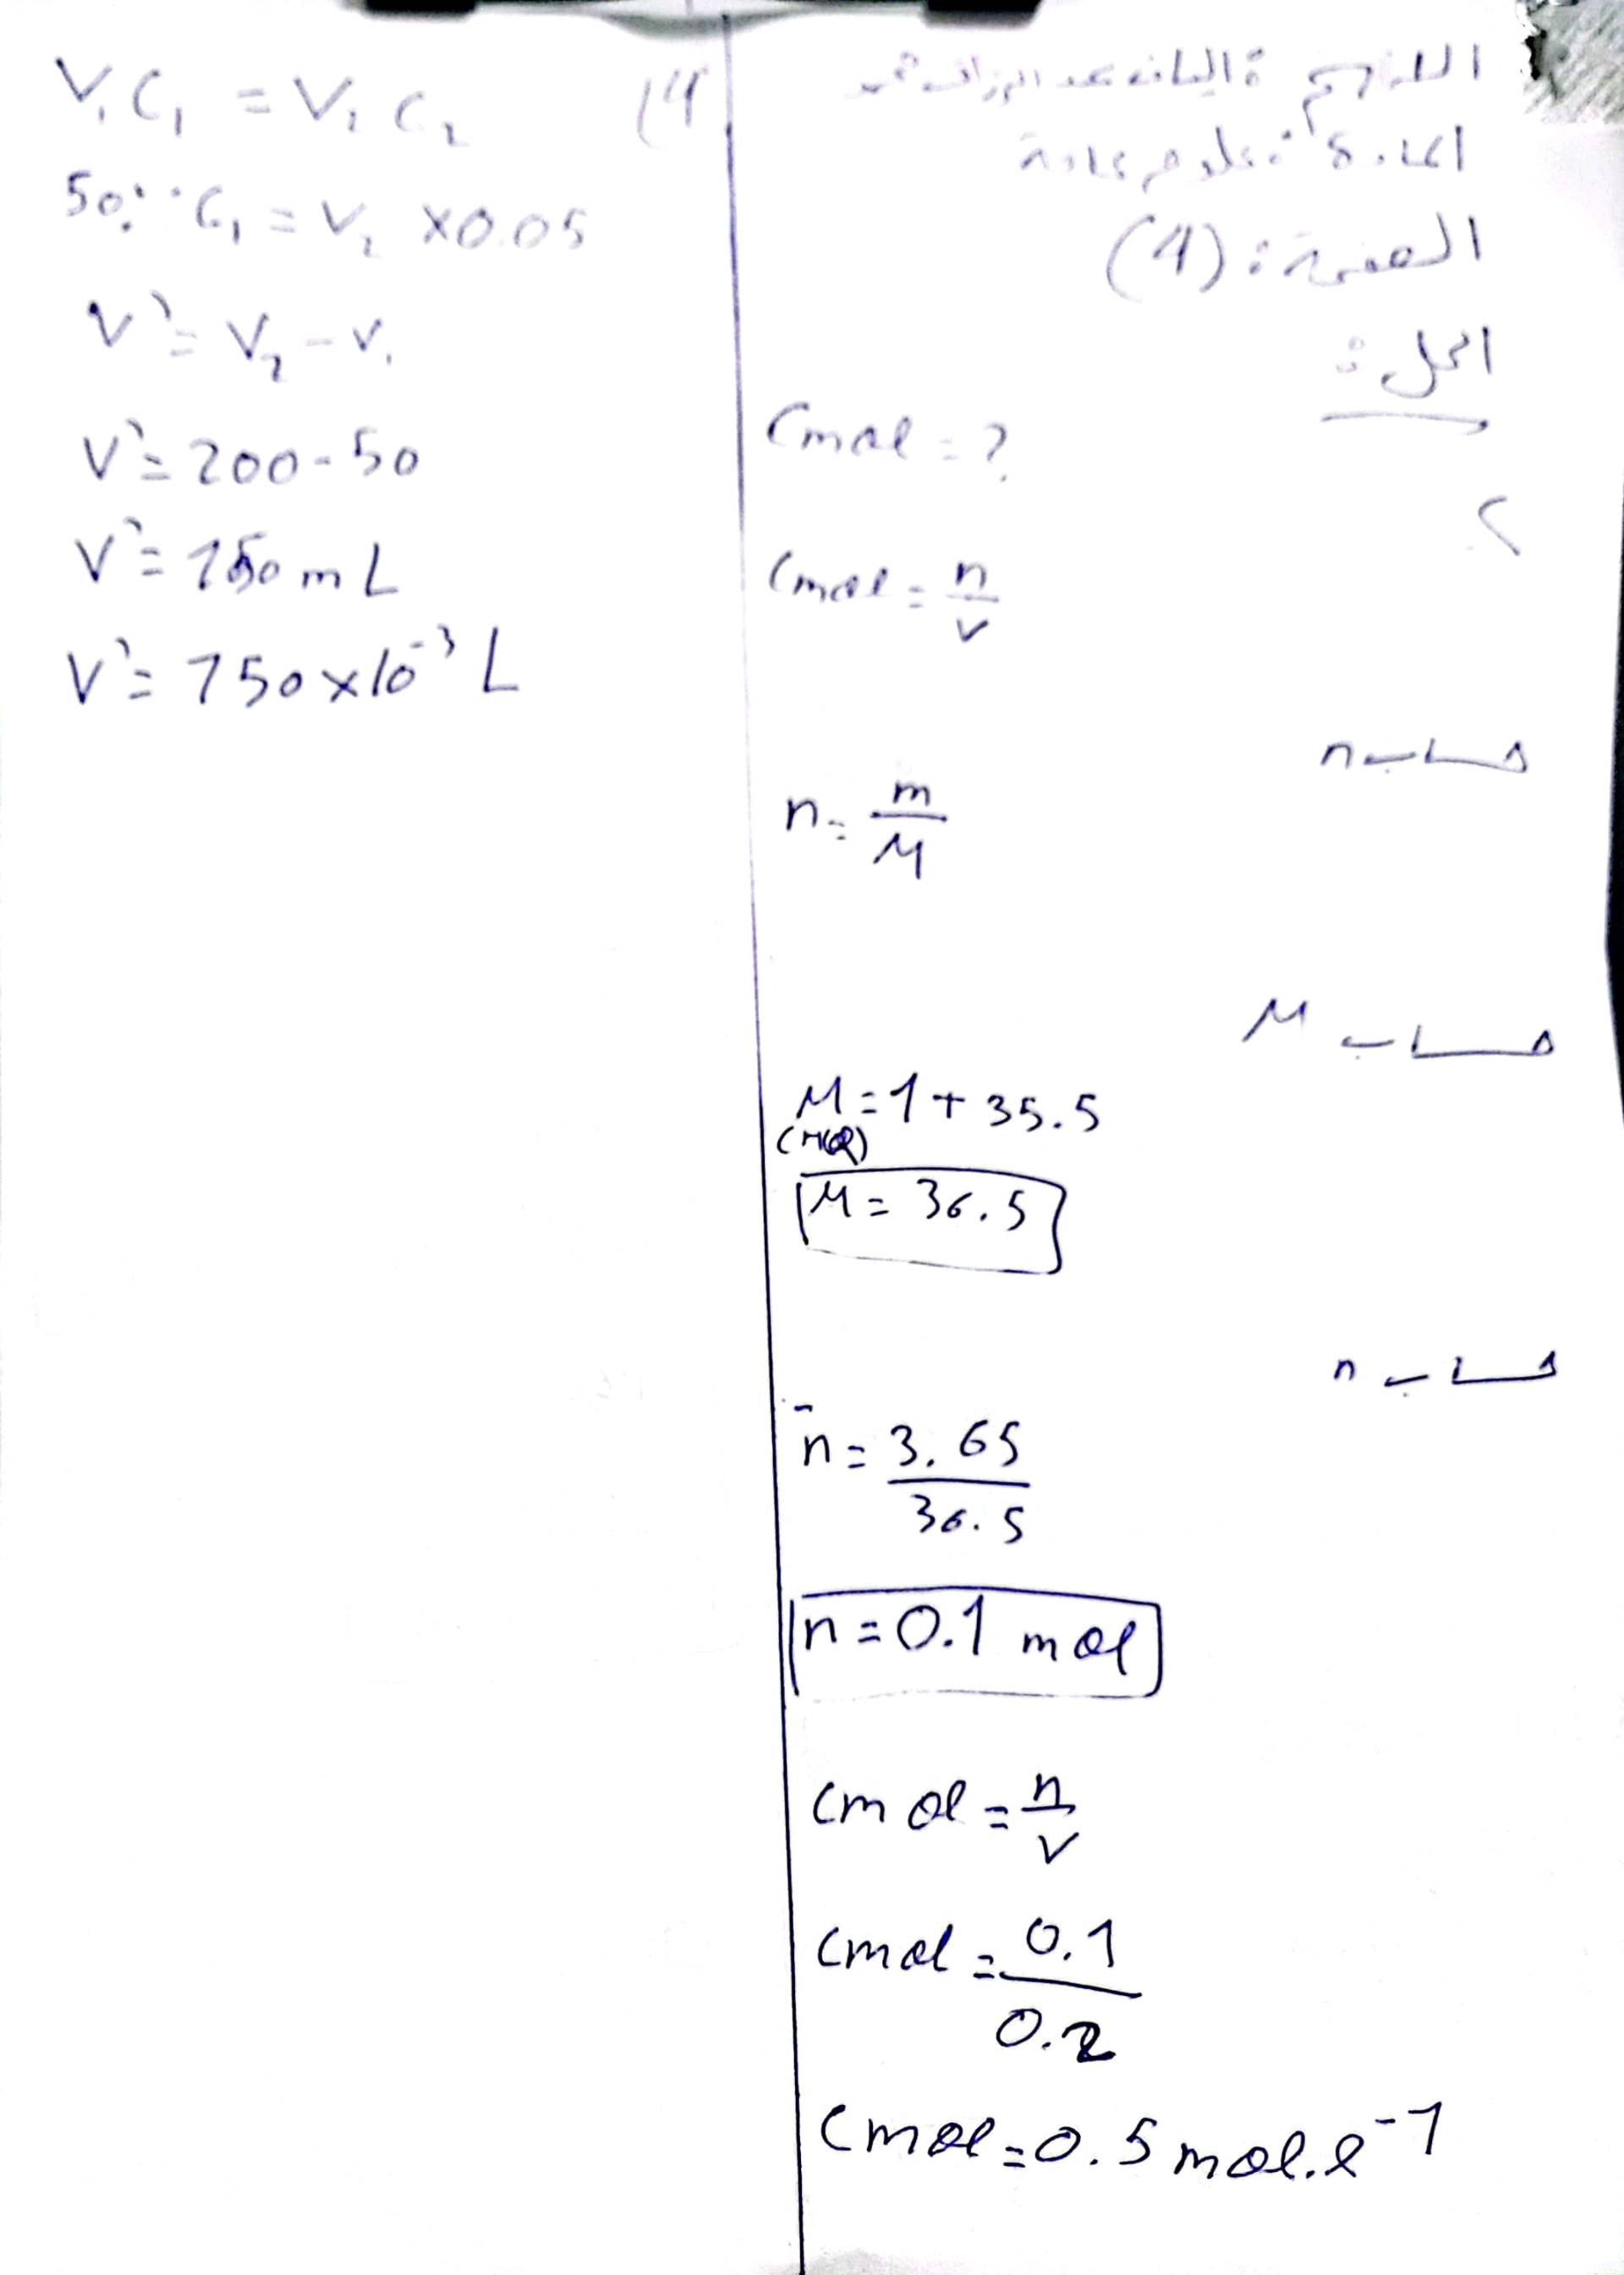 المادة: علوم عامة
الصفحة: (4)
الحل:
Cmol = ?
Cmol = n/v
حساب n
n = m/M
حساب M
M = 1 + 35.5
(HCl)
M = 36.5
حساب n
n = 3.65/36.5
n = 0.1 mol
Cmol = n/v
Cmol = 0.1/0.2
Cmol = 0.5 mol.l⁻¹
(4
V₁C₁ = V₁C₂
C₁ = V₂ x0.05
V' = V₂ - V₁
V' = 200 - 50
V' = 150 mL
V' = 150 x 10⁻³ L